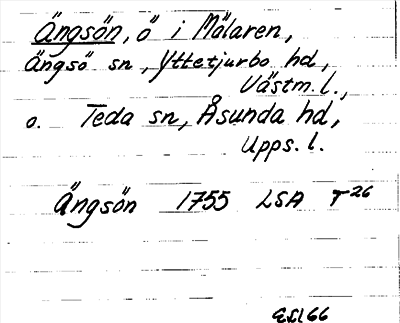 Ängsön, ö i Mälaren,
Ängsö sn, Yttertjurbo hd,
Västm. l.,
o. Teda sn, Åsunda hd,
Upps. l.
Ängsön 1755 LSA T 26